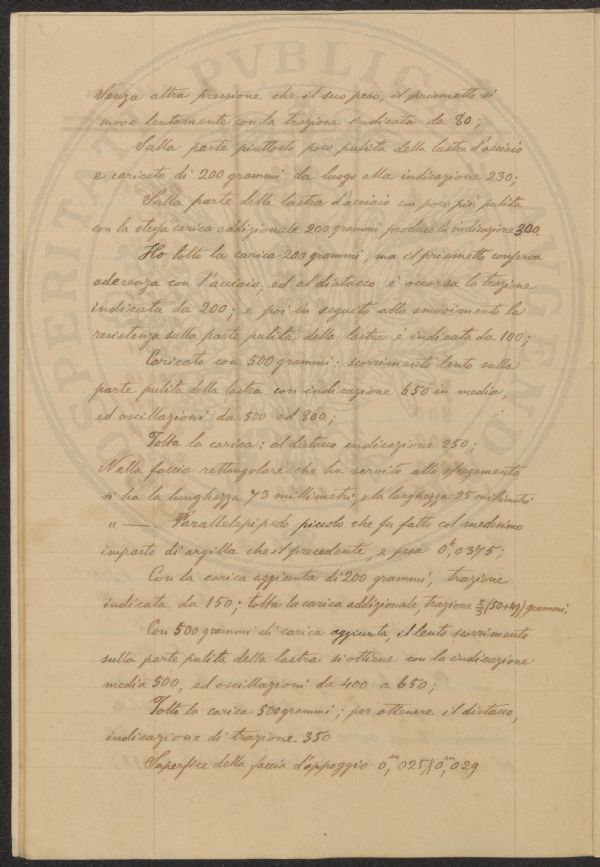 Senza altra pressione che il suo peso, il prismetto si
move lentamente con la trazione indicata da 80;
Sulla parte piuttosto poco pulita della lastra d'acciaio
e caricato di 200 grammi, da luogo alla indicazione 230;
Sulla parte della lastra d'acciaio un poco più pulita
con la stessa carica addizionale 200 grammi produce la indicazione 300.
Ho tolto la carica 200 grammi, ma il prismetto conserva
aderenza con l'acciaio, ed al distacco è occorsa la trazione
indicata da 200; e poi in seguito allo smovimento la
resistenza sulla parte pulita della lastra è indicata da 100;
Caricato con 500 grammi: scorrimento lento sulla
parte pulita della lastra con indicazione 650 in media,
ed oscillazioni da 500 ad 800;
Tolta la carica: al distacco indicazione 250;
Nella faccia rettangolare che ha servito allo sfregamento
si ha la lunghezza 73 millimetri, e la larghezza 25 millimetri
" — . Parallelepipedo piccolo che fu fatto col medesimo
impasto di argilla che il precedente, e pesa 0,ᵏ0375;
Con la carica aggiunta di 200 grammi, trazione
indicata da 150; tolta la carica addizionale, trazione 2/3 (50+49) grammi.
Con 500 grammi di carica aggiunta, il lento scorrimento
sulla parte pulita della lastra si ottiene con la indicazione
media 500, ed oscillazioni da 400 a 650;
Tolta la carica 500 grammi; per ottenere il distacco,
indicazione di trazione 350
Superfice della faccia d'appoggio 0,ᵐ025 X 0,ᵐ029
PROSPERITATI PVBLICAE AVGENDAE